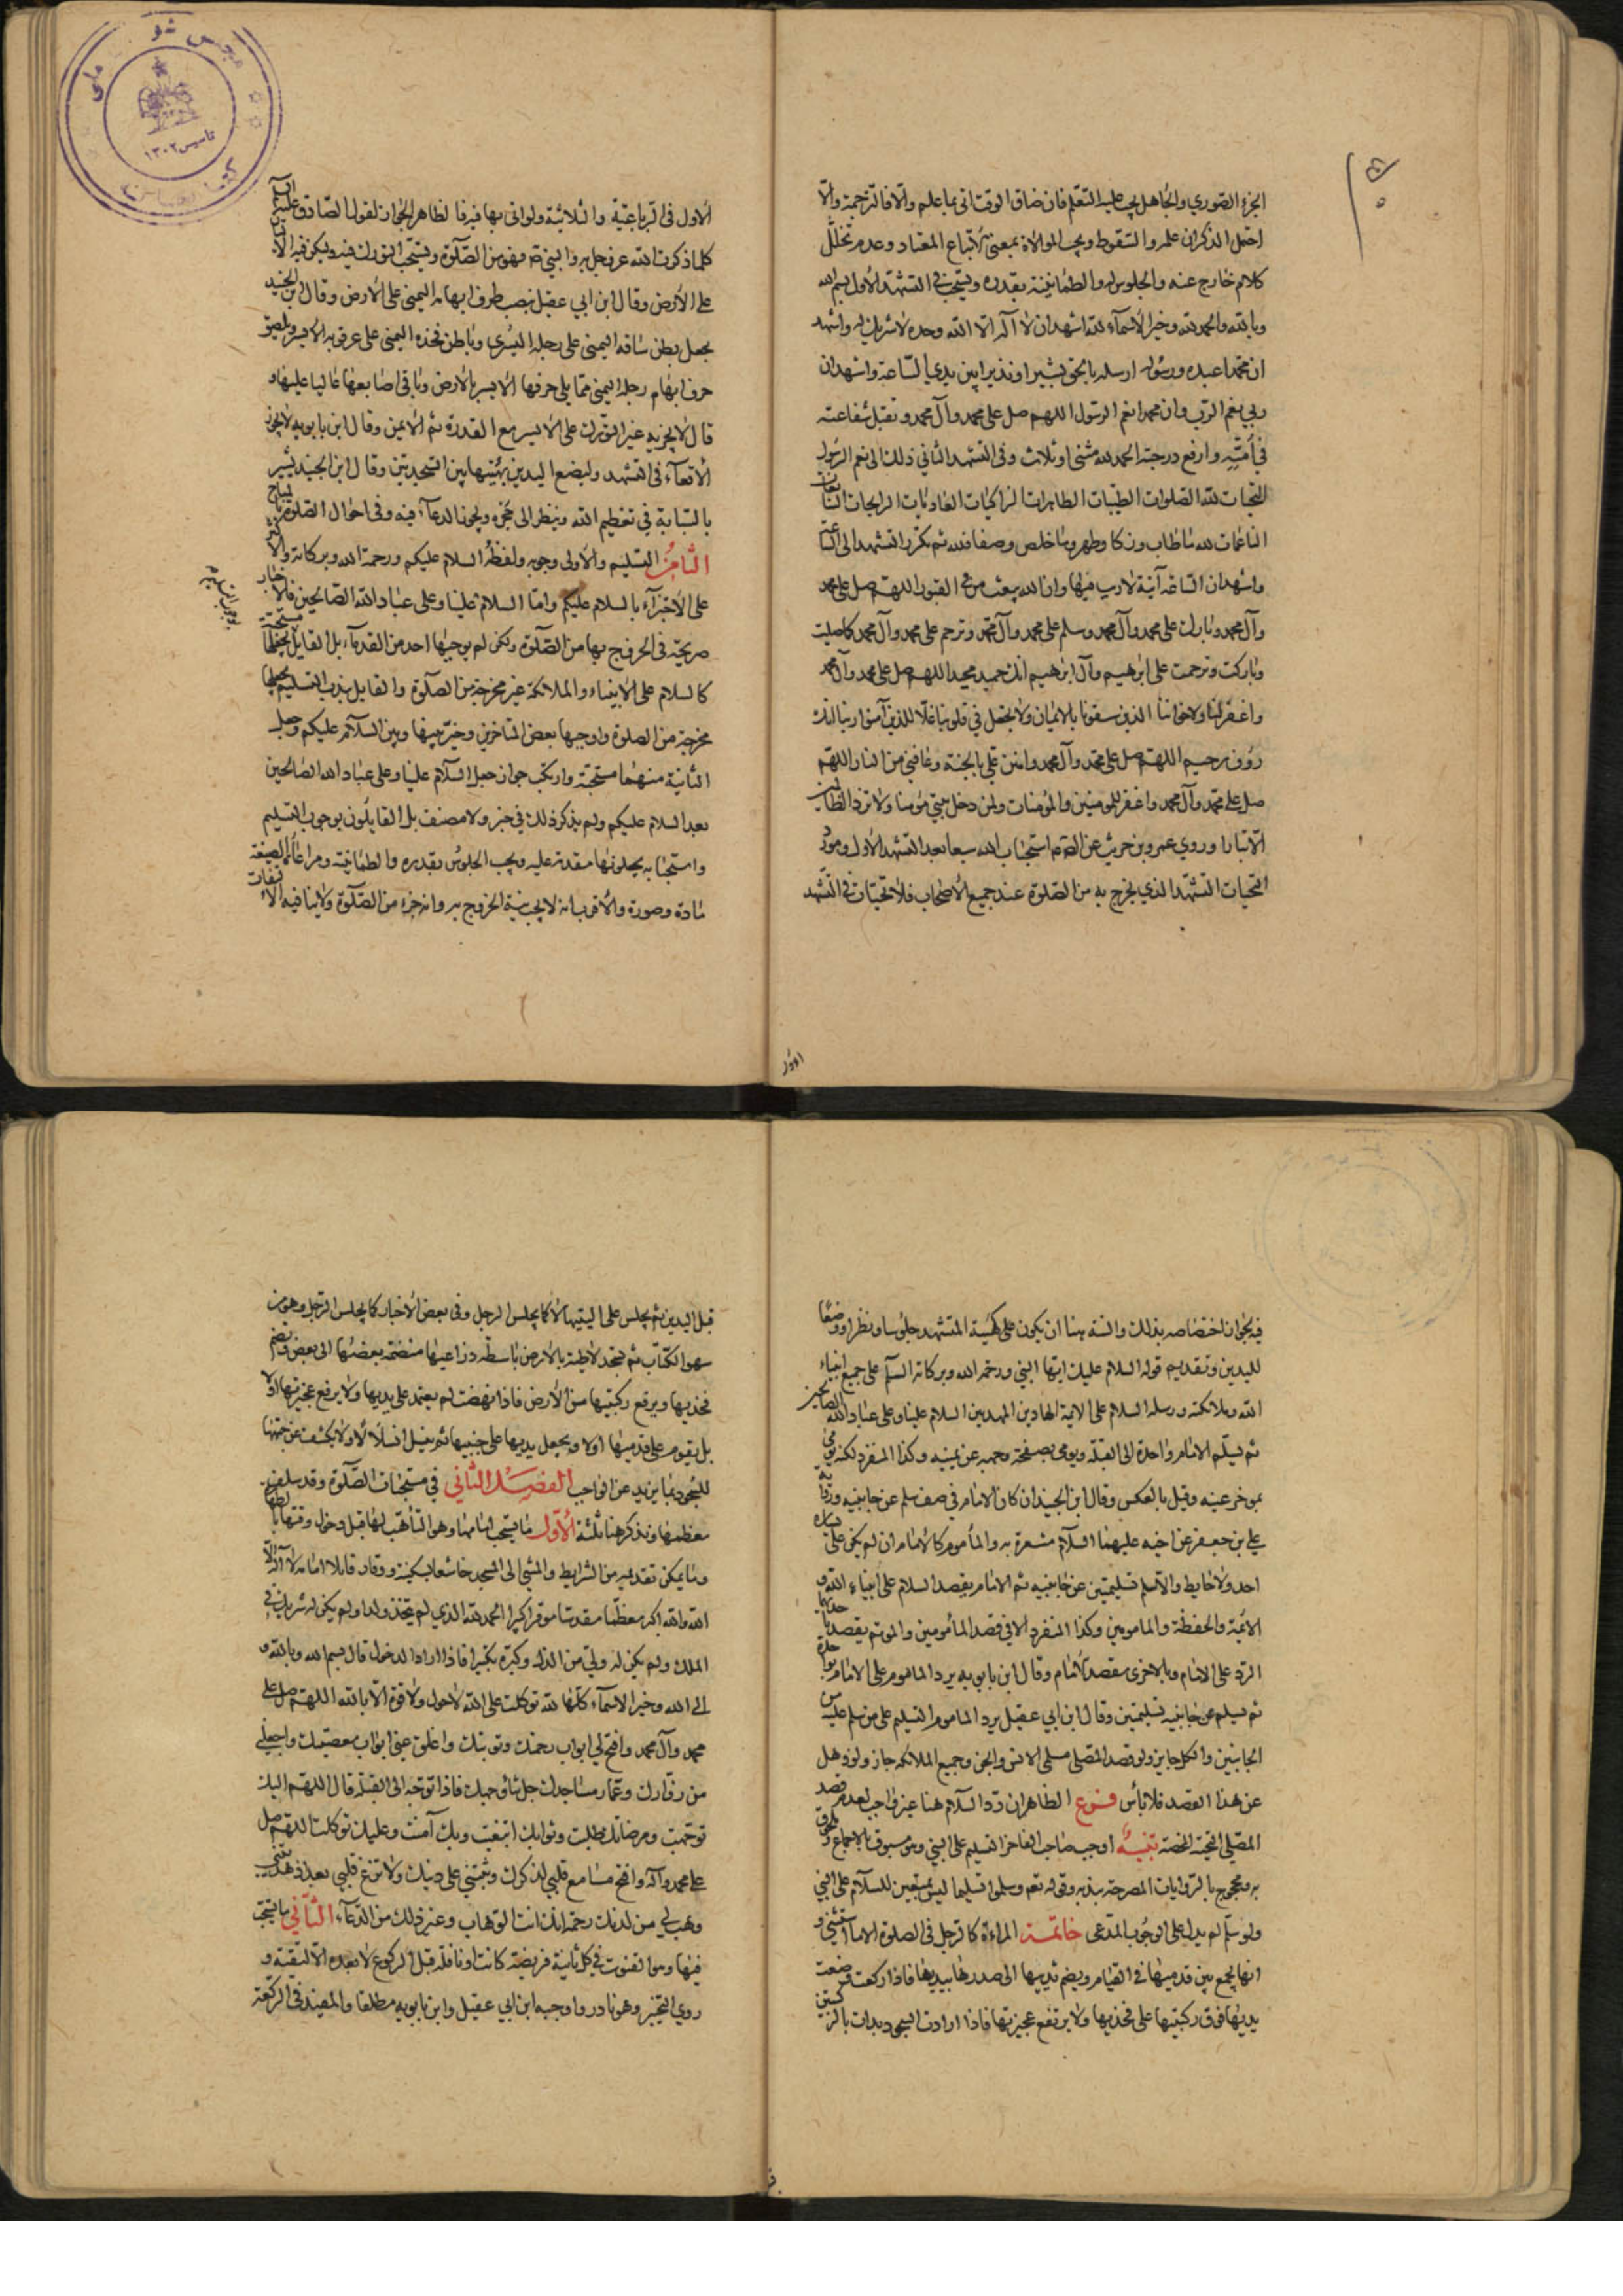 الجزء الصوري والجاهل يجب عليه التعلم فان ضاق الوقت اتى بما علم والا فالترجمة والا
احتمل الذكر ان علمه والسقوط ويجب الموالاة بمعنى الاتباع المعتاد وعدم تخلل
كلام خارج عنه والجلوس له والطمانينة بقدره ويستحب في التشهد الاول بسم الله
وبالله والحمد لله وخير الاسماء لله اشهد ان لا اله الا الله وحده لا شريك له واشهد
ان محمدا عبده ورسوله ارسله بالحق بشيرا ونذيرا بين يدي الساعة واشهد ان
ربي نعم الرب وان محمدا نعم الرسول اللهم صل على محمد وآل محمد وتقبل شفاعته
في امته وارفع درجته الحمد لله مثنى او ثلاث وفي التشهد الثاني ذلك الى نعم الرسول
التحيات لله الصلوات الطيبات الطاهرات الزاكيات الغاديات الرايحات السابغات
الناعمات لله ما طاب وزكا وطهر وما خلص وصفا فلله ثم تكرر التشهد الى الساعة
واشهد ان الساعة آتية لا ريب فيها وان الله يبعث من في القبور اللهم صل على محمد
وآل محمد وبارك على محمد وآل محمد وسلم على محمد وآل محمد وترحم على محمد وآل محمد كما صليت
وباركت وترحمت على ابرهيم وآل ابرهيم انك حميد مجيد اللهم صل على محمد وآل محمد
واغفر لنا ولاخواننا الذين سبقونا بالايمان ولا تجعل في قلوبنا غلا للذين آمنوا ربنا انك
رؤف رحيم اللهم صل على محمد وآل محمد وامنن علي بالجنة وعافني من النار اللهم
صل على محمد وآل محمد واغفر للمومنين والمؤمنات ولمن دخل بيتي مؤمنا ولا تزد الظالمين
الا تبارا وروي عمرو بن حريث عن الصم استحباب الله سبعا بعد التشهد الاول ومورد
التحيات التشهد الذي يخرج به من الصلوة عند جميع الاصحاب فلا تحيات في التشهد
الاول في الرباعية والثلاثية ولو اتى بها فيه فالظاهر الجواز لقول الصادق عليه السلم
كلما ذكرت الله عز وجل به والنبي صم فهو من الصلوة ويستحب التورك فيه ويكره فيه الاقعاء
على الارض وقال ابن ابي عقيل نصب طرف ابهامه اليمنى على الارض وقال ابن الجنيد
يجعل بطن ساقه اليمنى على رجله اليسرى وباطن فخذه اليمنى على عرقوبه الايسر ويلصق
حرف ابهام رجله اليمنى مما يلي حرفها الايسر بالارض وباقي اصابعها عاليا عليها و
قال لا يجزيه غير التورك على الايسر مع القدرة ثم الايمن وقال ابن بابويه لا يجوز
الاقعاء في التشهد وليضع اليدين بهيئتها بين السجدتين وقال ابن الجنيد يشير
بالسبابة في تعظيم الله وينظر الى حجره ويجوز الدعاء فيه وفي احوال الصلوة بالمباح
الثامن التسليم والاولى وجوبه ولفظه السلام عليكم ورحمة الله وبركاته والاكثر
على الاجتزاء بالسلام عليكم واما السلام علينا وعلى عباد الله الصالحين فالاخبار
صريحة في الخروج بها من الصلوة ولكن لم يوجبها احد من القدماء بل القايل يجعلها مستحبة
كالسلام على الانبياء والملائكة غير مخرجة من الصلوة والقايل بندب التسليم يجعلها
مخرجة من الصلوة واوجبها بعض المتاخرين وخير بينها وبين السلام عليكم وجعل
الثانية منهما مستحبة وارتكب جواز جعل السلام علينا وعلى عباد الله الصالحين
بعد السلام عليكم ولم يذكر ذلك في خبر ولا مصنف بل القايلون بوجوب التسليم
واستحبابه يجعلونها مقدمة عليه ويجب الجلوس بقدره والطمانينة ومراعاة الصيغة
مادة وصورة والاقرب انه لا يجب نية الخروج به وانه جزء من الصلوة ولا ينافيه الا
فيجوز اختصاصه بذلك والسنة هنا ان يكون على هيئة المتشهد جلوسا ونظرا ووضعا
لليدين وتقديم قوله السلام عليك ايها النبي ورحمة الله وبركاته السلم على جميع انبياء
الله وملائكته ورسله السلام على الائمة الهادين المهديين السلام علينا وعلى عباد الله الصالحين
ثم يسلم الامام واحدة الى القبلة ويومي بصفحة وجهه عن يمينه وكذا المنفرد لكنه يومي
بموخر عينه وقيل بالعكس وقال ابن الجنيد ان كان الامام في صف سلم عن جانبيه ورواية
علي بن جعفر عن اخيه عليهما السلام مشعرة به والمأموم كالامام ان لم يكن على يساره
احد ولا حايط والا سلم تسليمتين عن جانبيه ثم الامام يقصد السلام على انبياء الله و
الائمة والحفظة والمامومين وكذا المنفرد الا في قصد المأمومين والموتم يقصد باحديهما
الرد على الامام وبالاخرى مقصد الامام وقال ابن بابويه يرد الماموم على الامام بواحدة
ثم يسلم عن جانبيه تسليمتين وقال ابن ابي عقيل يرد الماموم التسليم على من سلم عليه من
الجانبين والكل جايز ولو قصد المصلي مسلمي الانس والجن وجميع الملائكة جاز ولو ذهل
عن هذا القصد فلا بأس فرع الظاهر ان رد السلام هنا غير واجب لعدم قصد
المصلي التحية المحضة تنبيه اوجب صاحب الفاخر التسليم على النبي وهو مسبوق بالاجماع وملحوق
به ومحجوج بالروايات المصرحة بندبه وقوله تعم وسلموا تسليما ليس بمتعين للسلام على النبي
ولو سلم لم يدل على الوجوب المدعى خاتمة المراءة كالرجل في الصلوة الا ما استثني و
انها تجمع بين قدميها في القيام ويضم ثدييها الى صدرها بيديها فاذا ركعت وضعت
يديها فوق ركبتيها على فخذيها ولا يرتفع عجيزتها فاذا ارادت السجود بدات بالركبتين
قبل اليدين ثم يجلس على اليتيها لا كما يجلس الرجل وفي بعض الاخبار كما يجلس الرجل وهو من
سهو الكتاب ثم تسجد لاطئة بالارض باسطة ذراعيها منضمة بعضها الى بعض وتضم
فخذيها ويرفع ركبتيها من الارض فاذا نهضت لم يعتمد على يديها ولا يرفع عجيزتها اولا
بل يقوم على قدميها اولا ويجعل يديها على جنبيها ثم ينسل انسلالا ولا يكشف عن جبهتها
للسجود بما يزيد عن الواجب الفصل الثاني في مستحبات الصلوة وقد سلف
معظمها ونذكر هنا ثلثة الاول ما يستحب امامها وهو التأهب لها قبل دخول وقتها بايقاع
وما يمكن تقديمه من الشرايط والمشي الى المسجد خاشعا بسكينة ووقار قايلا امامه لا اله الا
الله والله اكبر معظما مقدسا موقرا كبيرا الحمد لله الذي لم يتخذ ولدا ولم يكن له شريك في
الملك ولم يكن له ولي من الذل وكبره تكبيرا فاذا اراد الدخول قال بسم الله وبالله و
الى الله وخير الاسماء كلها لله توكلت على الله لا حول ولا قوة الا بالله اللهم صل على
محمد وآل محمد وافتح لي ابواب رحمتك وتوبتك واغلق عني ابواب معصيتك واجعلني
من زوارك وعمار مساجدك جل ثناؤ وجهك فاذا توجه الى القبلة قال اللهم اليك
توجهت ومرضاتك طلبت وثوابك ابتغيت وبك آمنت وعليك توكلت اللهم صل
على محمد وآله وافتح مسامع قلبي لذكرك وثبتني على دينك ولا تزغ قلبي بعد اذ هديتني
وهب لي من لدنك رحمة انك انت الوهاب وغير ذلك من الدعاء الثاني ما يستحب
فيها وهو القنوت في كل ثانية فريضة كانت او نافلة قبل الركوع لا بعده الا لتقية و
روي التخيير وهو نادر واوجبه ابن ابي عقيل وابن بابويه مطلقا والمفيد في الركعة